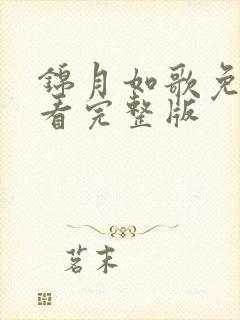 錦月如歌免
看完整版
茗末